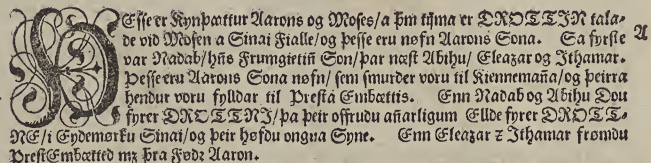 ÞEsse er Kynþættur Aarons og Moses/ a þm tijma er DROTTJN talade
de vid Mosen a Sinai Fialle/ og þesse eru nøfn Aarons Sona. Sa fyrste A
var Nadab/ hñs Frumgietiñ Son/ þar næst Abihu/ Eleazar og Ithamar.
Þesse eru Aarons Sona nøfn/ sem smurder voru til Kiennemaña/ og þeirra
hendur voru fylldar til Prestá Embættis. Enn Nadab og Abihu Dou
fyrer DROTTNJ/ þa þeir offrudu añarligum Ellde fyrer DROTT-
NE/ i Eydemørku Sinai/ og þeir høfdu ongua Syne. Enn Eleazar z Ithamar frømdu
PrestEmbætted mz þra Fødz Aaron.